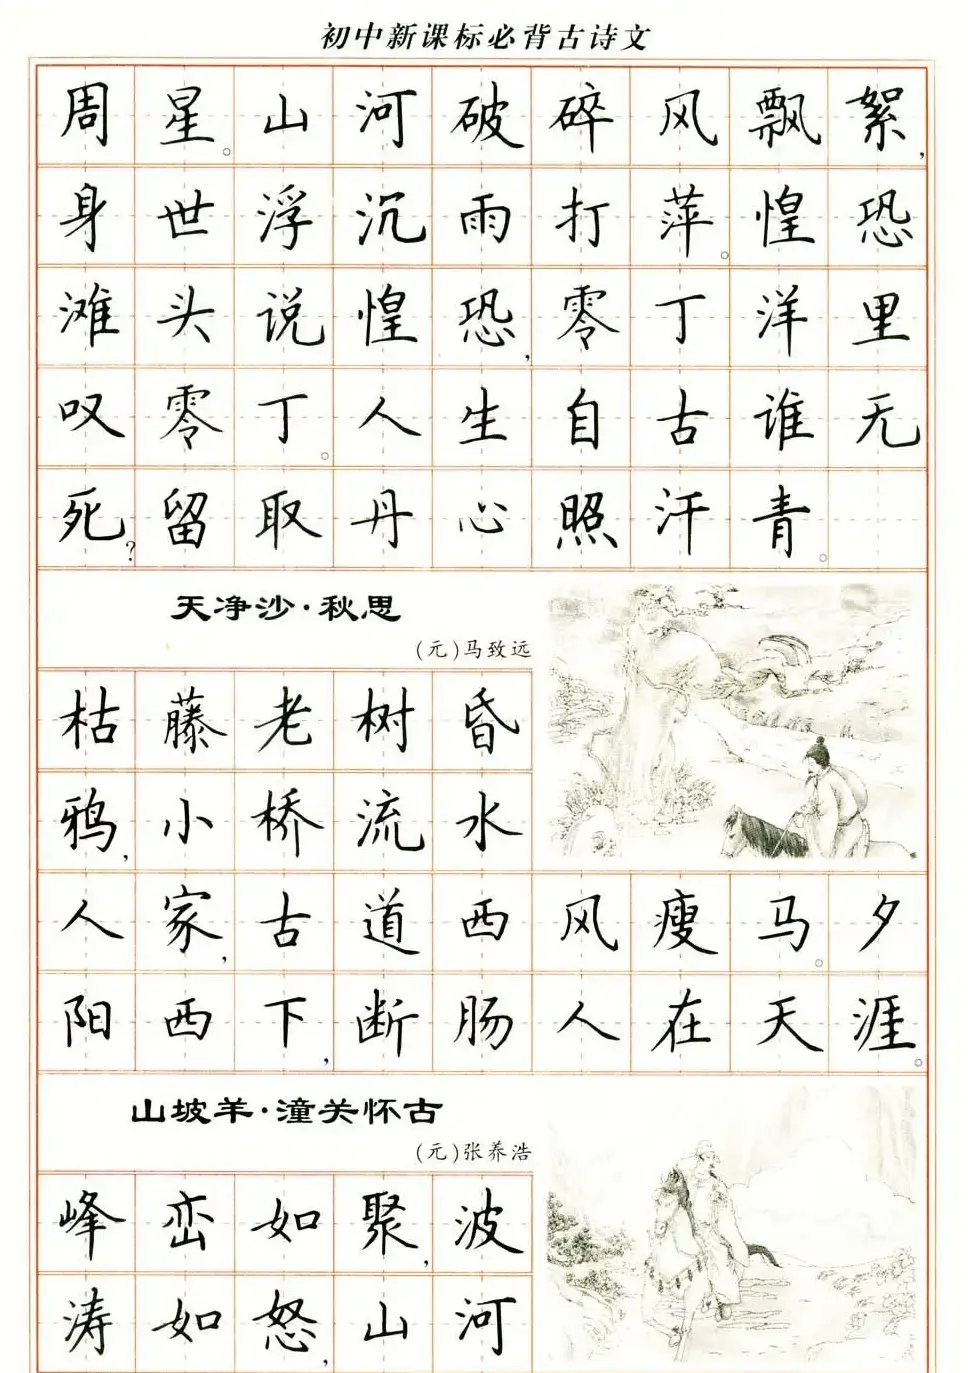 初中新课标必背古诗文
周星。山河破碎风飘絮，
身世浮沉雨打萍。惶恐
滩头说惶恐，零丁洋里
叹零丁。人生自古谁无
死？留取丹心照汗青。
天净沙·秋思
（元）马致远
枯藤老树昏
鸦，小桥流水
人家，古道西风瘦马。夕
阳西下，断肠人在天涯。
山坡羊·潼关怀古
（元）张养浩
峰峦如聚，波
涛如怒，山河